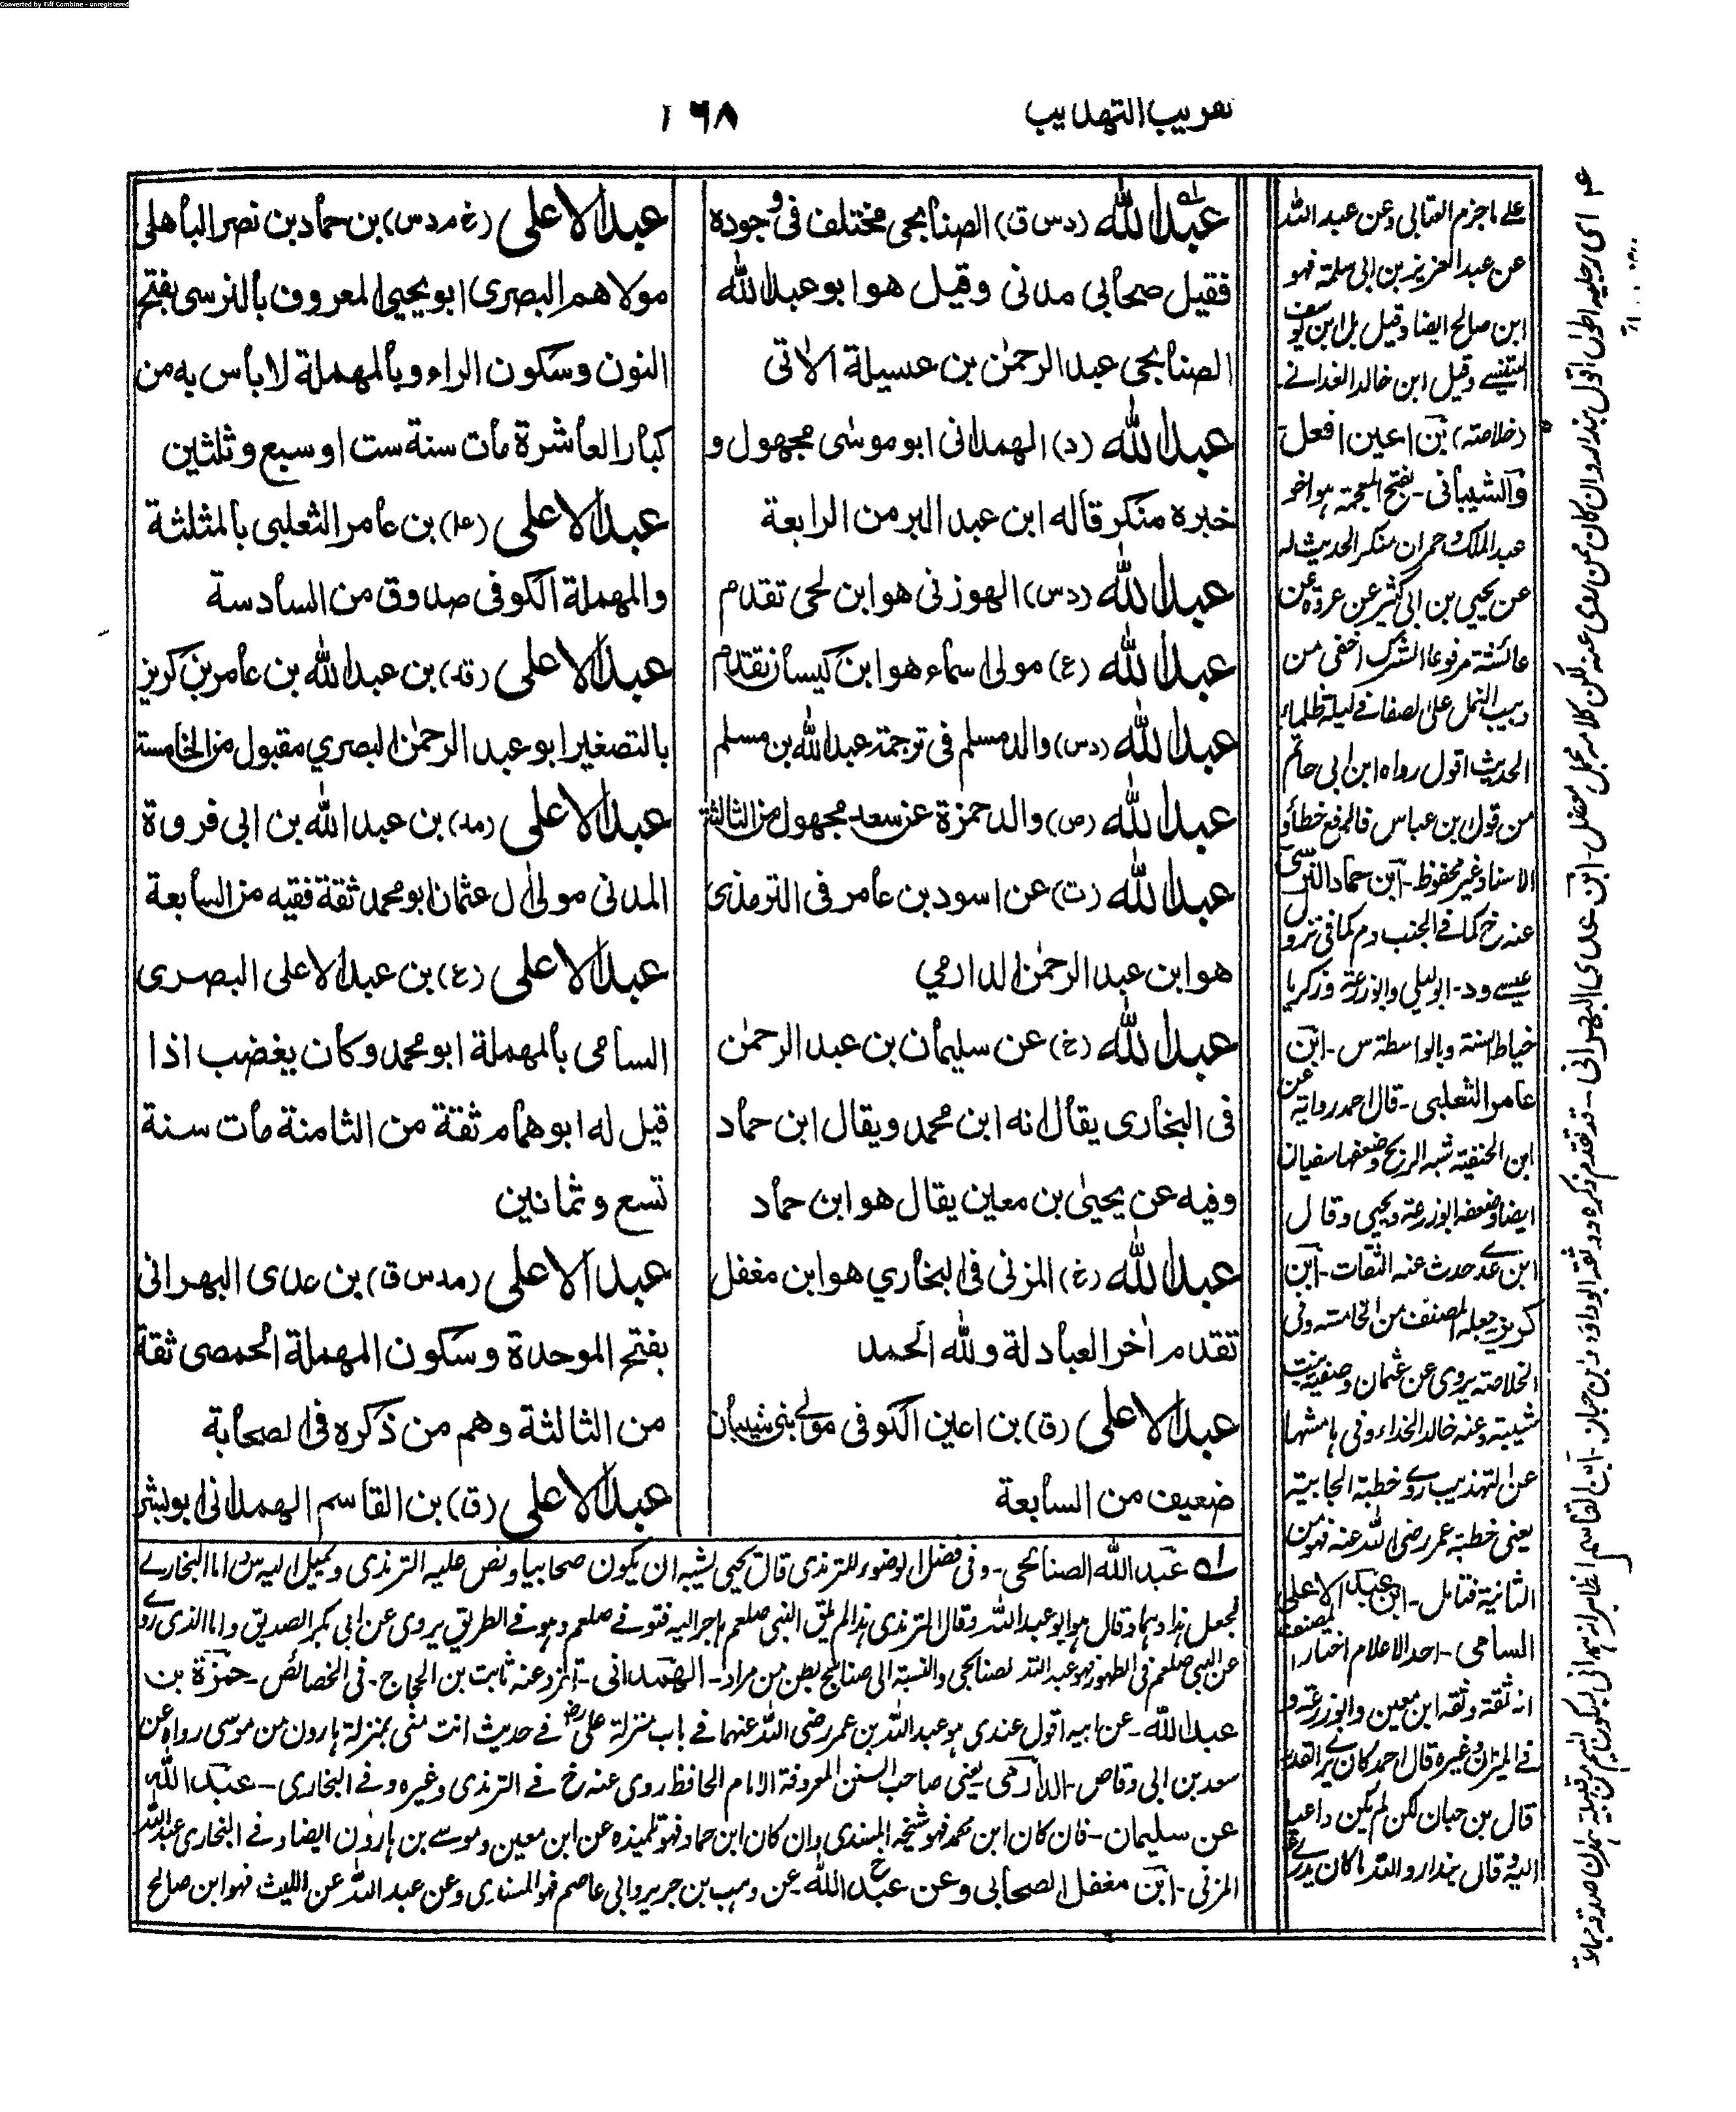 Converted by Tiff Combine - unregistered
تقريب التهذيب
١٦٨
عبد الله (دس ق) الصنابحي مختلف في وجوده
فقيل صحابي مدني وقيل هو ابو عبد الله
الصنابحي عبد الرحمٰن بن عسيلة الاٰتي
عبد الله (د) الهمداني ابو موسٰى مجهول و
خبره منكر قاله ابن عبد البر من الرابعة
عبد الله (دس) الهوزني هو ابن لحي تقدم
عبد الله (ع) مولى اسماء هو ابن كيسان تقدم
عبد الله (دس) والد مسلم في ترجمة عبد الله بن مسلم
عبد الله (ص) والد حمزة عن سعد مجهول من الثالثة
عبد الله (ت) عن اسود بن عامر في الترمذي
هو ابن عبد الرحمٰن الدارمي
عبد الله (خ) عن سليمان بن عبد الرحمٰن
في البخاري يقال انه ابن محمد ويقال ابن حماد
وفيه عن يحيىٰ بن معين يقال هو ابن حماد
عبد الله (خ) المزني في البخاري هو ابن مغفل
تقدم اٰخر العبادلة ولله الحمد
عبد الاعلى (ق) بن اعين الكوفي مولى بني شيبان
ضعيف من السابعة
عبد الاعلى (خ م د س) بن حماد بن نصر الباهلي
مولاهم البصري ابو يحيى المعروف بالنرسي بفتح
النون وسكون الراء وبالمهملة لا باس به من
كبار العاشرة مات سنة ست او سبع وثلثين
عبد الاعلى (عه) بن عامر الثعلبي بالمثلثة
والمهملة الكوفي صدوق من السادسة
عبد الاعلى (قد) بن عبد الله بن عامر بن كريز
بالتصغير ابو عبد الرحمٰن البصري مقبول من الخامسة
عبد الاعلى (مد) بن عبد الله بن ابي فروة
المدني مولى اٰل عثمان ابو محمد ثقة فقيه من السابعة
عبد الاعلى (ع) بن عبد الاعلى البصري
السامي بالمهملة ابو محمد وكان يغضب اذا
قيل له ابو همام ثقة من الثامنة مات سنة
تسع وثمانين
عبد الاعلى (مد س ق) بن عدي البهراني
بفتح الموحدة وسكون المهملة الحمصي ثقة
من الثالثة وهم من ذكره في الصحابة
عبد الاعلى (ق) بن القاسم الهمداني ابو بشر
عبد الله الصنابحي - وفي فضل الوضوء للترمذي قال يحيى يشبه ان يكون صحابيا ونص عليه الترمذي ويميل اليه س واما البخاري
فجعل هذا وهما وقال هو ابو عبد الله وقال الترمذي هذا لم يلق النبي صلعم هاجر اليه فتوفي صلعم وهو في الطريق يروي عن ابي بكر الصديق واما الذي روى
عن النبي صلعم في الطهور فهو عبد الله الصنابحي والنسبة الى صنابح بطن من مراد - الهمداني - تمزو عنه ثابت بن الحجاج - في الخصائص - حمزة بن
عبد الله - عن ابيه اقول عندي هو عبد الله بن عمر رضي الله عنهما في باب منزلة علي رض في حديث انت مني بمنزلة هارون من موسى رواه عن
سعد بن ابي وقاص - الدارمي يعني صاحب السنن المعروفة الامام الحافظ روى عنه خ في الترمذي وغيره و في البخاري - عبد الله
عن سليمان - فان كان ابن محمد فهو شيخه المسندي وان كان ابن حماد فهو تلميذه عن ابن معين وموسى بن هارون ايضا و في البخاري عبد الله
المزني - ابن مغفل الصحابي وعن عبد الله - عن وهب بن جرير وابي عاصم فهو المسندي وعن عبد الله عن الليث فهو ابن صالح
على ما جزم الغسابي وعن عبد الله
عن عبد العزيز بن ابي سلمة فهو
ابن صالح ايضا وقيل بل ابن يوسف
التنيسي وقيل ابن خالد الغداني
(خلاصته) بن اعين افعل
والشيباني - بفتح المعجمة هو اخو
عبد الملك وحمران منكر الحديث له
عن يحيى بن ابي كثير عن عروة عن
عائشة مرفوعا الشرك اخفى من
دبيب النمل على الصفا في ليلة ظلماء
الحديث اقول رواه ابن ابي حاتم
من قول ابن عباس فالرفع خطأ و
الاسناد غير محفوظ - ابن حماد النرسي
عنه خ كما في الجنب و م كما في
ود - ابو يعلى وابو زرعة وزكريا
خياط السنة وبالواسطة س - ابن
عامر الثعلبي - قال احمد روايته عن
ابن الحنفية شبه الريح وضعفها سفيان
ايضا وضعفه ابو زرعة ويحيى وقال
ابن عدي حدث عنه الثقات - ابن
كريز جعله المصنف من الخامسة وفي
الخلاصة يروي عن عثمان وصفية بنت
شيبة وعنه خالد الحذاء وفي هامشها
عن التهذيب روى خطبة الجابية
يعني خطبة عمر رضي الله عنه فهو من
الثانية فتامل - ابن عبد الاعلى
السامي - احد الاعلام اختار المصنف
انه ثقة وثقه ابن معين وابو زرعة و
في الميزان وغيره قال احمد كان يرى القدر
قال بن حبان لكن لم يكن داعيا
اليه وقال بندار والله ما كان يدري
اي رجليه اطول اقول بندار وان كان ممن روى عنه لكن كلامه مجمل - ابن عدي البهراني - قد تقدم ذكره ووثقه ابو داؤد وابن حبان - ابن القاسم